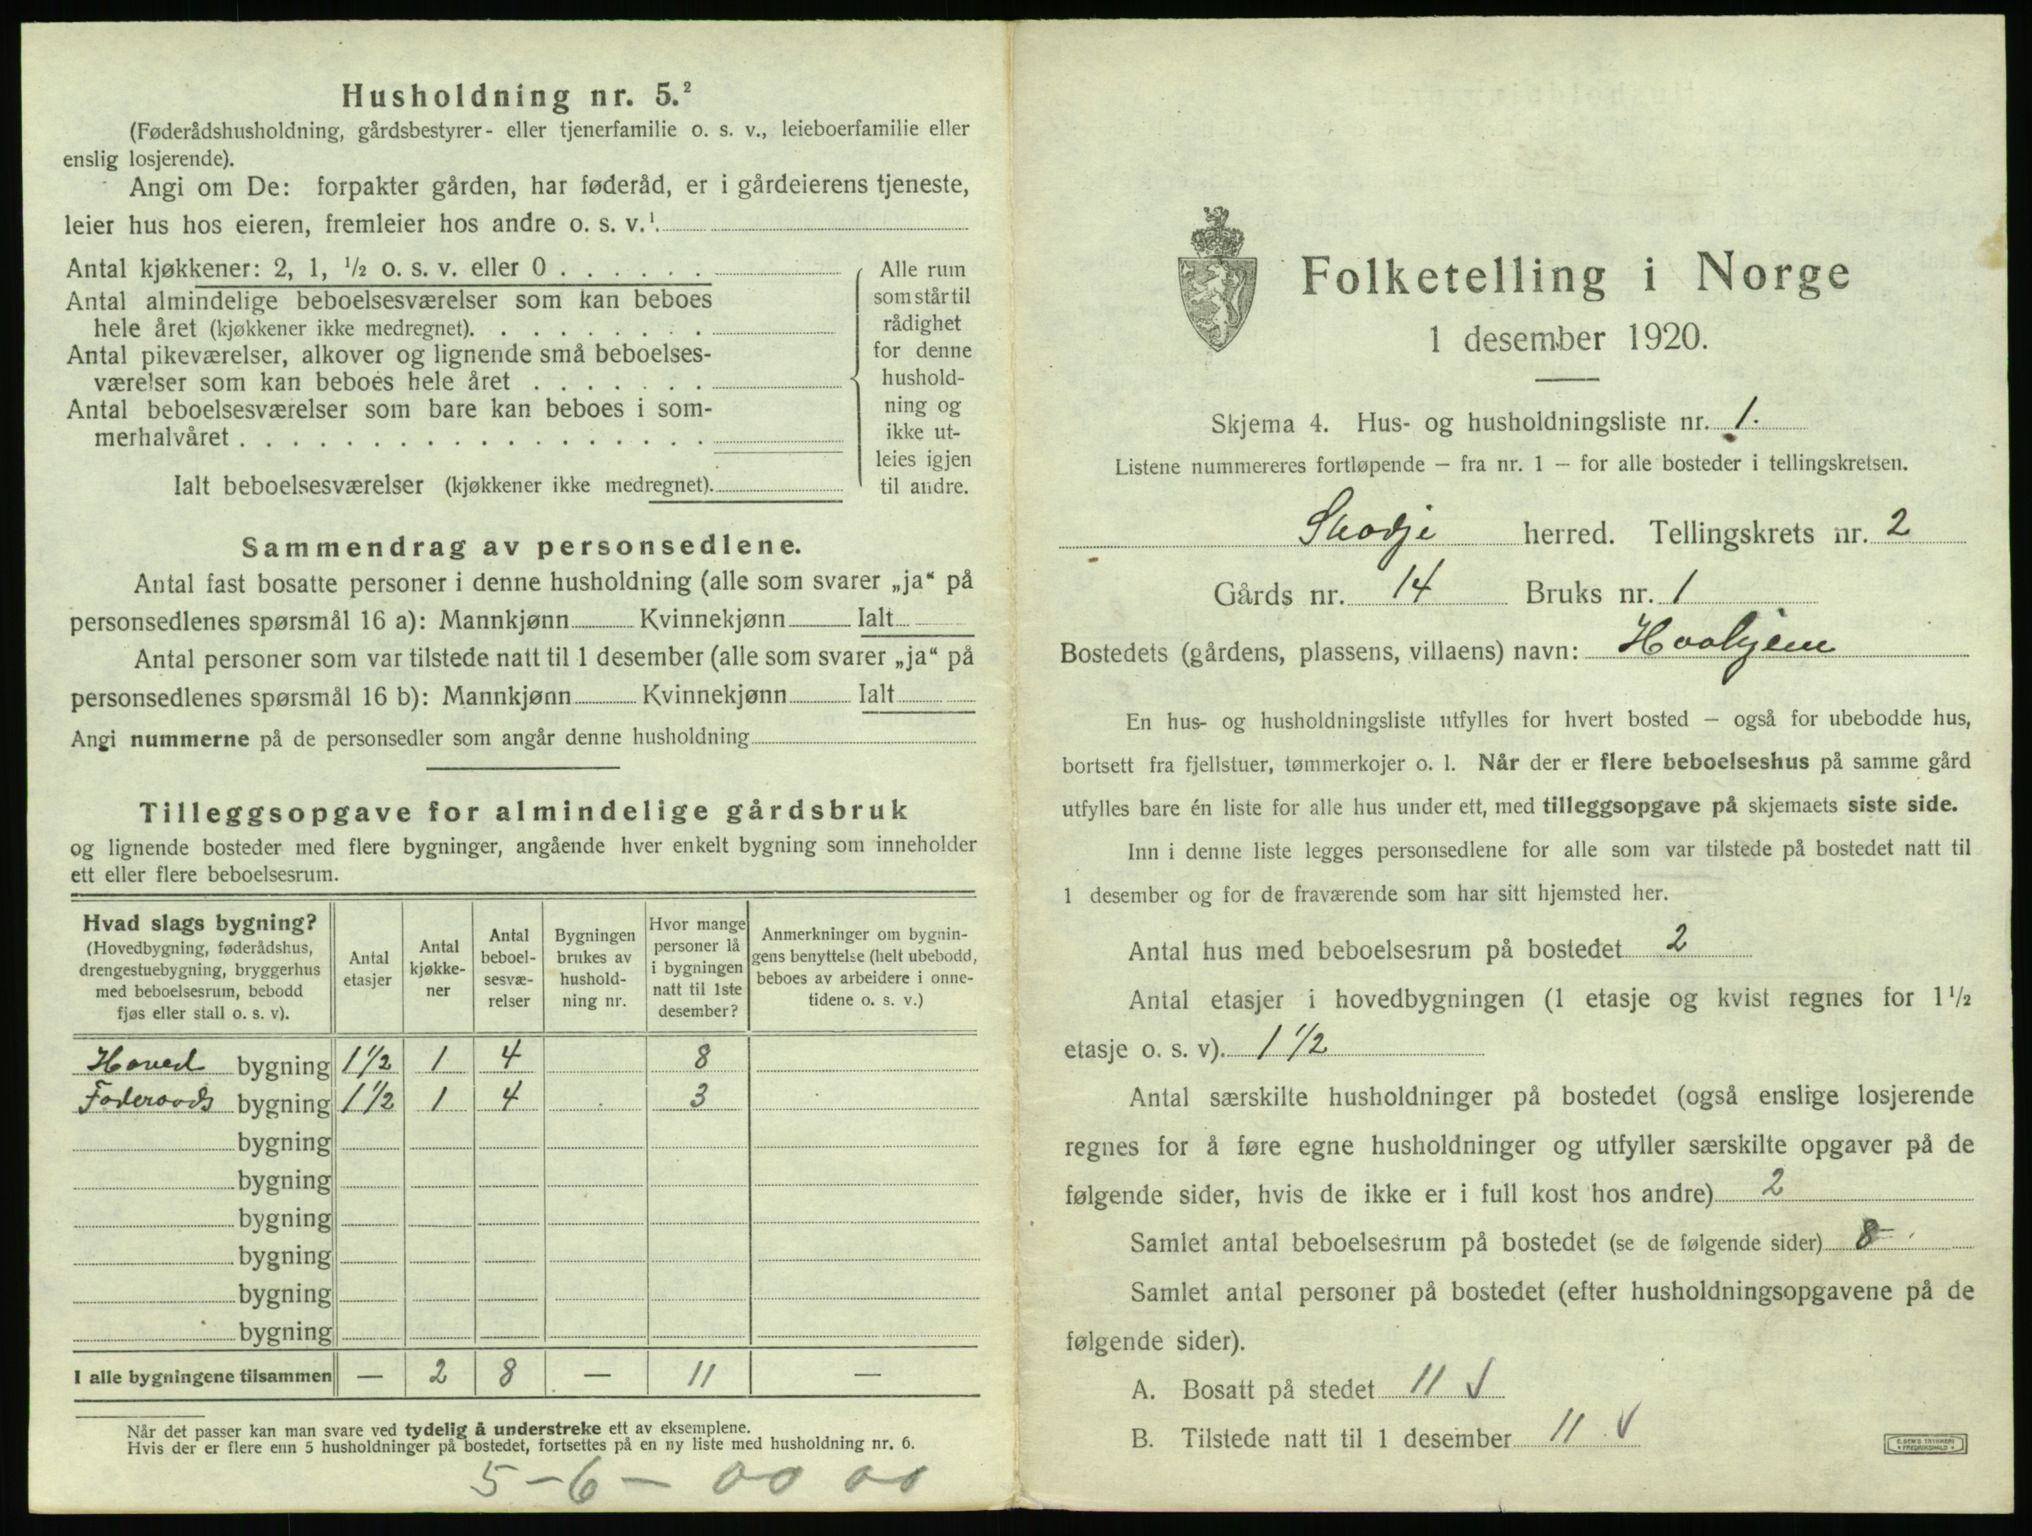 Husholdning nr. 5.²
(Føderådshusholdning, gårdsbestyrer- eller tjenerfamilie o. s. v., leieboerfamilie eller
enslig losjerende).
Angi om De: forpakter gården, har føderåd, er i gårdeierens tjeneste,
leier hus hos eieren, fremleier hos andre o. s. v.¹
Antal kjøkkener: 2, 1, ½ o. s. v. eller 0 . . . . . .
Antal almindelige beboelsesværelser som kan beboes
hele året (kjøkkener ikke medregnet). . . . . . . . .
Antal pikeværelser, alkover og lignende små beboelses-
værelser som kan beboes hele året . . . . . . .
Antal beboelsesværelser som bare kan beboes i som-
merhalvåret . . . . . . . . . . . . . . . . . .
Ialt beboelsesværelser (kjøkkener ikke medregnet).
Alle rum
som står til
rådighet
for denne
hushold-
ning og
ikke ut-
leies igjen
til andre.
Sammendrag av personsedlene.
Antal fast bosatte personer i denne husholdning (alle som svarer „ja“ på
personsedlenes spørsmål 16 a): Mannkjønn Kvinnekjønn Ialt
Antal personer som var tilstede natt til 1 desember (alle som svarer „ja“ på
personsedlenes spørsmål 16 b): Mannkjønn Kvinnekjønn Ialt
Angi nummerne på de personsedler som angår denne husholdning
Tilleggsopgave for almindelige gårdsbruk
og lignende bosteder med flere bygninger, angående hver enkelt bygning som inneholder
ett eller flere beboelsesrum.
Hvad slags bygning?
(Hovedbygning, føderådshus,
drengestuebygning, bryggerhus
med beboelsesrum, bebodd
fjøs eller stall o. s. v).
Antal
etasjer
Antal
kjøkke-
ner
Antal
beboel-
sesvæ-
relser
Bygningen
brukes av
hushold-
ning nr.
Hvor mange
personer lå
i bygningen
natt til 1ste
desember?
Anmerkninger om bygnin-
gens benyttelse (helt ubebodd,
beboes av arbeidere i onne-
tidene o. s. v.)
Hoved bygning 1 1/2 1 4 8
Føderaads bygning 1 1/2 1 4 3
bygning
bygning
bygning
bygning
bygning
bygning
I alle bygningene tilsammen — 2 8 — 11 —
Når det passer kan man svare ved tydelig å understreke ett av eksemplene.
Hvis der er flere enn 5 husholdninger på bostedet, fortsettes på en ny liste med husholdning nr. 6.
5 - 6 - 00 00
Folketelling i Norge
1 desember 1920.
Skjema 4. Hus- og husholdningsliste nr. 1.
Listene nummereres fortløpende – fra nr. 1 – for alle bosteder i tellingskretsen.
Skodje herred. Tellingskrets nr. 2
Gårds nr. 14 Bruks nr. 1
Bostedets (gårdens, plassens, villaens) navn: Haahjem
En hus- og husholdningsliste utfylles for hvert bosted – også for ubebodde hus,
bortsett fra fjellstuer, tømmerkojer o. l. Når der er flere beboelseshus på samme gård
utfylles bare én liste for alle hus under ett, med tilleggsopgave på skjemaets siste side.
Inn i denne liste legges personsedlene for alle som var tilstede på bostedet natt til
1 desember og for de fraværende som har sitt hjemsted her.
Antal hus med beboelsesrum på bostedet 2
Antal etasjer i hovedbygningen (1 etasje og kvist regnes for 1½
etasje o. s. v). 1 1/2
Antal særskilte husholdninger på bostedet (også enslige losjerende
regnes for å føre egne husholdninger og utfyller særskilte opgaver på de
følgende sider, hvis de ikke er i full kost hos andre) 2
Samlet antal beboelsesrum på bostedet (se de følgende sider) 8
Samlet antal personer på bostedet (efter husholdningsopgavene på de
følgende sider).
A. Bosatt på stedet 11 √
B. Tilstede natt til 1 desember 11 √
E. SEM'S TRYKKERI
FREDRIKSHALD